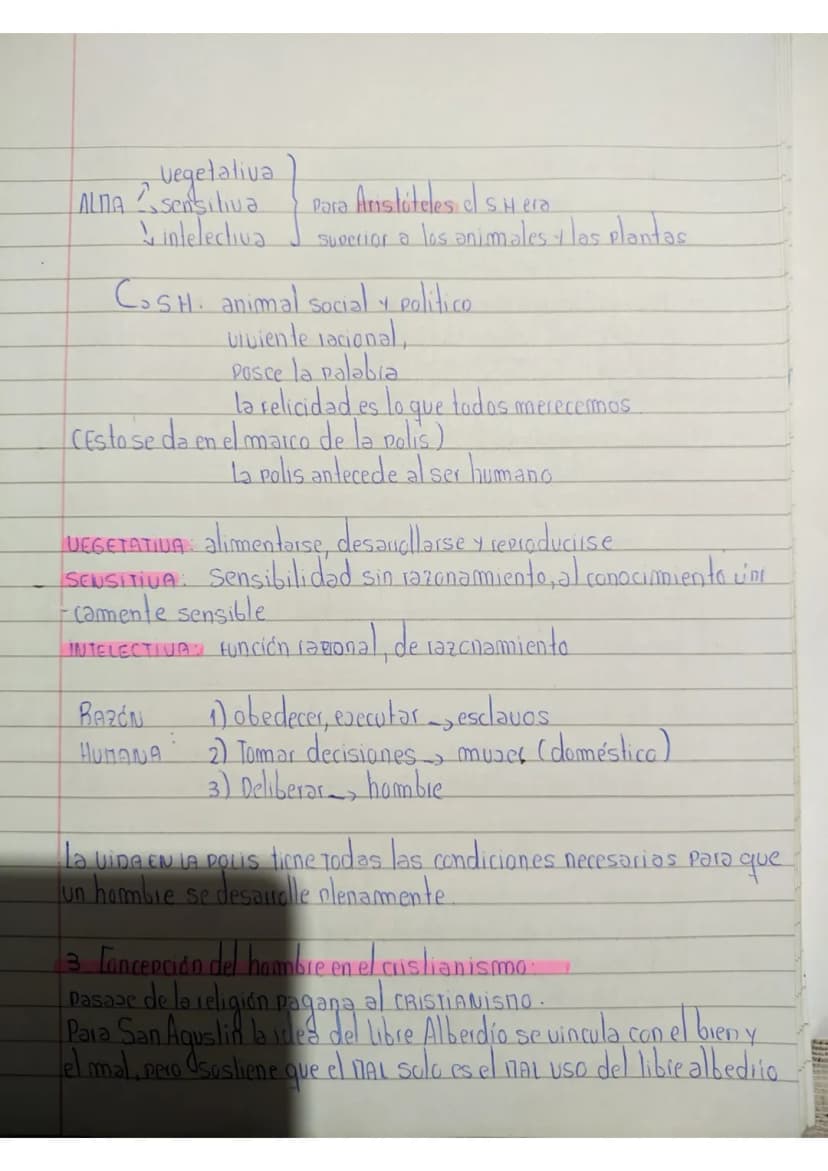 vegetativa
ALMA sensitiva Para Aristóteles el SH era
intelectiva superior a los animales y las plantas
SH. animal social y politico
viviente racional,
posee la palabra
la felicidad es lo que todos merecemos
(Esto se da en el marco de la polis)
La polis antecede al ser humano
VEGETATIVA: alimentarse, desarrollarse y reproducirse
SENSITIVA: Sensibilidad sin razonamiento, al conocimiento úni
-camente sensible
INTELECTIVA: Función racional, de razonamiento
RAZÓN 1) obedecer, ejecutar → esclavos
HUMANA: 2) Tomar decisiones → mujer (doméstica)
3) Deliberar → hombre
La VIDA EN LA POLIS tiene Todas las condiciones necesarias para que
un hombre se desarrolle plenamente.
3 Concepción del hombre en el cristianismo:
Pasaje de la religión pagana al CRISTIANISMO.
Para San Agustín la idea del libre Alberdío se vincula con el bien y
el mal, pero sostiene que el MAL solo es el MAL USO del libre albedrío